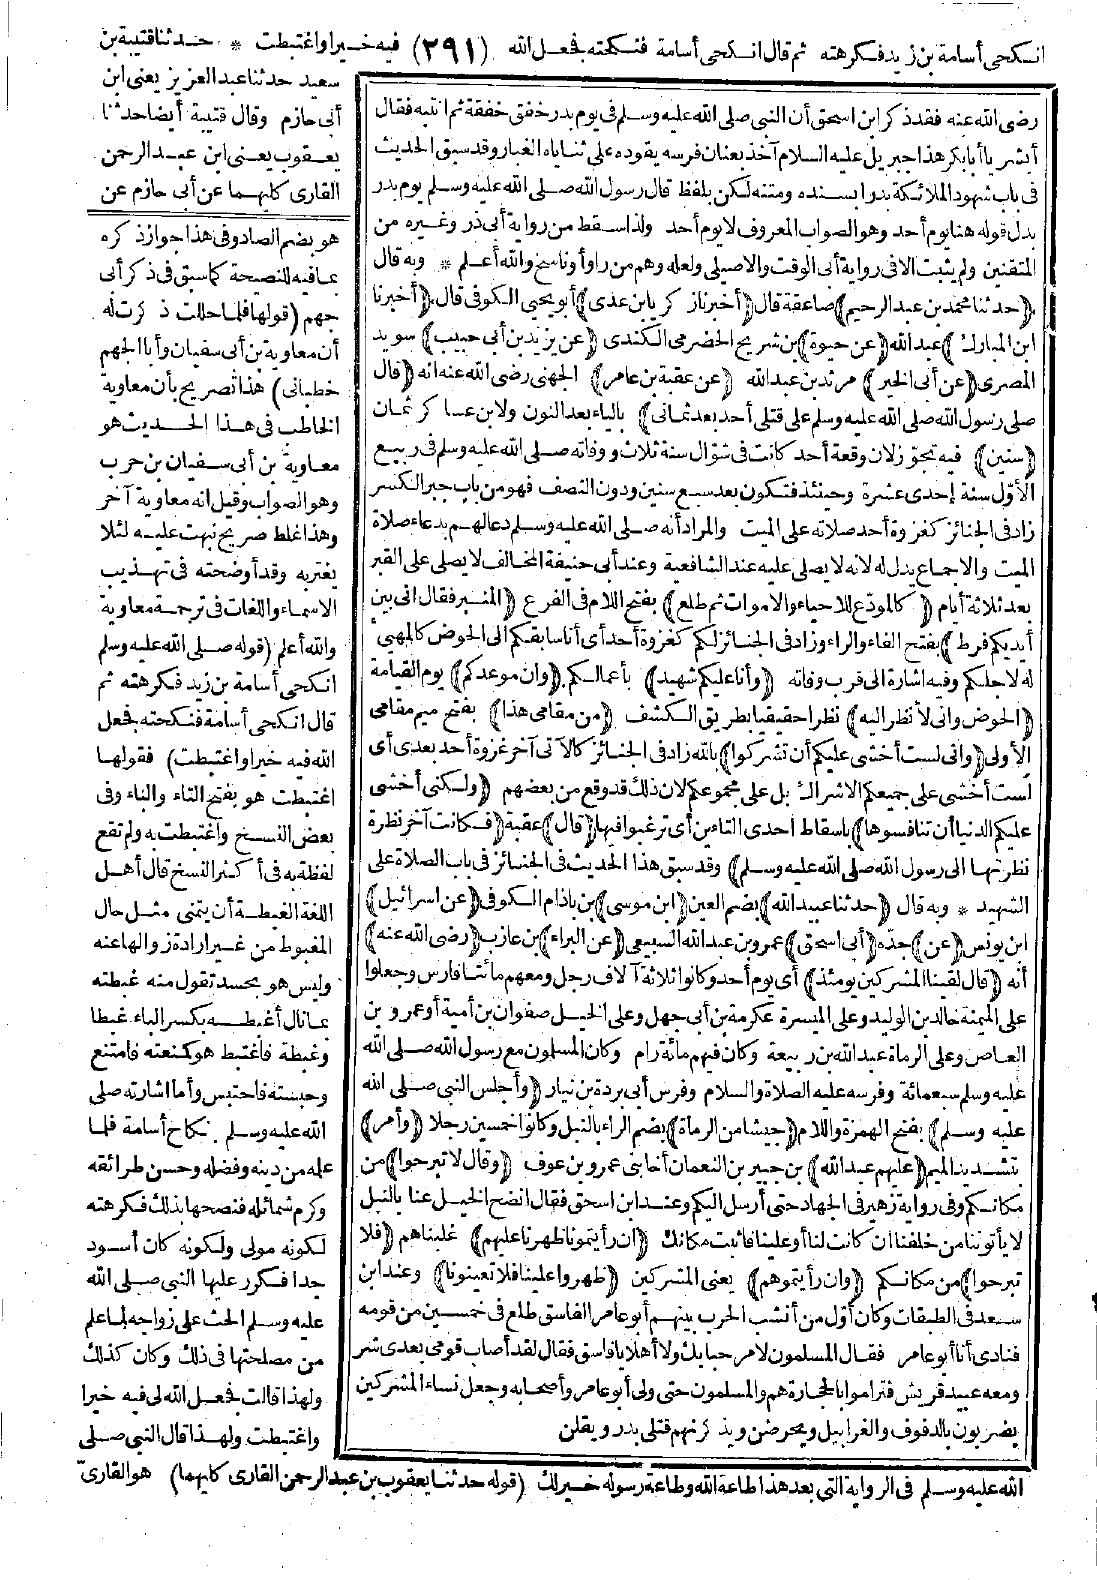 انكحى أسامة بن زيد فكرهته ثم قال انكحى أسامة فنكحته فجعل الله (٢٩١) فيه خيرا واغتبطت * حدثنا قتيبة بن
سعيد حدثنا عبد العزيز يعنى ابن
أبى حازم وقال قتيبة أيضا حدثنا
يعقوب يعنى ابن عبد الرحمن
القارى كليهما عن أبى حازم عن
رضى الله عنه فقد ذكر ابن اسحق أن النبى صلى الله عليه وسلم فى يوم بدر خفق خفقة ثم انتبه فقال
أبشر يا أبا بكر هذا جبريل عليه السلام آخذ بعنان فرسه يقوده على ثناياه الغبار وقد سبق الحديث
فى باب شهود الملائكة بدرا بسنده ومتنه لكن بلفظ قال رسول الله صلى الله عليه وسلم يوم بدر
بدل قوله هنا يوم أحد وهو الصواب المعروف لا يوم أحد ولذا سقط من رواية أبى ذر وغيره من
المتقنين ولم يثبت الا فى رواية أبى الوقت والاصيلى ولعله وهم من راو أو ناسخ والله أعلم * وبه قال
(حدثنا محمد بن عبد الرحيم) صاعقة قال (أخبرنا زكريا بن عدى) أبو يحيى الكوفى قال (أخبرنا
ابن المبارك) عبد الله (عن حيوة) بن شريح الحضرمى الكندى (عن يزيد بن أبى حبيب) سويد
المصرى (عن أبى الخير) مرثد بن عبد الله (عن عقبة بن عامر) الجهنى رضى الله عنه انه (قال
صلى رسول الله صلى الله عليه وسلم على قتلى أحد بعد ثمانى) بالياء بعد النون ولابن عساكر ثمان
(سنين) فيه تجوز لان وقعة أحد كانت فى شوال سنة ثلاث ووفاته صلى الله عليه وسلم فى ربيع
الأول سنة إحدى عشرة وحينئذ فتكون بعد سبع سنين ودون النصف فهو من باب جبر الكسر
زاد فى الجنائز كغزوة أحد صلاته على الميت والمراد أنه صلى الله عليه وسلم دعا لهم بدعاء صلاة
الميت والاجماع يدل له لانه لا يصلى عليه عند الشافعية وعند أبى حنيفة المخالف لا يصلى على القبر
بعد ثلاثة أيام (كالمودع للاحياء والاموات ثم طلع) بفتح اللام فى الفرع (المنبر فقال انى بين
أيديكم فرط) بفتح الفاء والراء وزاد فى الجنائز لكم كغزوة أحد أى أنا سابقكم الى الحوض كالمهيئ
له لاجلكم وفيه اشارة الى قرب وفاته (وأنا عليكم شهيد) بأعمالكم (وان موعدكم) يوم القيامة
(الحوض وانى لأنظر اليه) نظرا حقيقيا بطريق الكشف (من مقامى هذا) بفتح ميم مقامى
الأولى (وانى لست أخشى عليكم أن تشركوا) بالله زاد فى الجنائز كالآتى آخر غزوة أحد بعدى أى
لست أخشى على جميعكم الاشراك بل على مجموعكم لان ذلك قد وقع من بعضهم (ولكنى أخشى
عليكم الدنيا أن تنافسوها) باسقاط احدى التاءين أى ترغبوا فيها (قال) عقبة (فكانت آخر نظرة
نظرتها الى رسول الله صلى الله عليه وسلم) وقد سبق هذا الحديث فى الجنائز فى باب الصلاة على
الشهيد * وبه قال (حدثنا عبيد الله) بضم العين (ابن موسى) بن باذام الكوفى (عن اسرائيل)
ابن يونس (عن) جده (أبى اسحق) عمرو بن عبد الله السبيعى (عن البراء) بن عازب (رضى الله عنه)
أنه (قال لقينا المشركين يومئذ) أى يوم أحد وكانوا ثلاثة آلاف رجل ومعهم مائتا فارس وجعلوا
على الميمنة خالد بن الوليد وعلى الميسرة عكرمة بن أبى جهل وعلى الخيل صفوان بن أمية أو عمرو بن
العاص وعلى الرماة عبد الله بن ربيعة وكان فيهم مائة رام وكان المسلمون مع رسول الله صلى الله
عليه وسلم سبعمائة وفرسه عليه الصلاة والسلام وفرس أبى بردة بن نيار (وأجلس النبى صلى الله
عليه وسلم) بفتح الهمزة واللام (جيشا من الرماة) بضم الراء بالنبل وكانوا خمسين رجلا (وأمر)
بتشديد الميم (عليهم عبد الله) بن جبير بن النعمان أخا بنى عمرو بن عوف (وقال لا تبرحوا) من
مكانكم وفى رواية زهير فى الجهاد حتى أرسل اليكم وعند ابن اسحق فقال انضح الخيل عنا بالنبل
لا يأتوننا من خلفنا ان كانت لنا أو علينا فاثبت مكانك (ان رأيتمونا ظهرنا عليهم) غلبناهم (فلا
تبرحوا) من مكانكم (وان رأيتموهم) يعنى المشركين (ظهروا علينا فلا تعينونا) وعند ابن
سعد فى الطبقات وكان أول من أنشب الحرب بينهم أبو عامر الفاسق طلع فى خمسين من قومه
فنادى أنا أبو عامر فقال المسلمون لا مرحبا بك ولا أهلا يا فاسق فقال لقد أصاب قومى بعدى شر
ومعه عبيد قريش فتراموا بالحجارة هم والمسلمون حتى ولى أبو عامر وأصحابه وجعل نساء المشركين
يضربون بالدفوف والغرابيل ويحرضن ويذكرنهم قتلى بدر ويقلن
هو بضم الصاد وفى هذا جواز ذكره
بما فيه للنصيحة كما سبق فى ذكر أبى
جهم (قولها فلما حللت ذكرت له
أن معاوية بن أبى سفيان وأبا الجهم
خطبانى) هذا تصريح بأن معاوية
الخاطب فى هذا الحديث هو
معاوية بن أبى سفيان بن حرب
وهو الصواب وقيل انه معاوية آخر
وهذا غلط صريح نبهت عليه لئلا
يغتر به وقد أوضحته فى تهذيب
الاسماء واللغات فى ترجمة معاوية
والله أعلم (قوله صلى الله عليه وسلم
انكحى أسامة بن زيد فكرهته ثم
قال انكحى أسامة فنكحته فجعل
الله فيه خيرا واغتبطت) فقولها
اغتبطت هو بفتح التاء والباء وفى
بعض النسخ واغتبطت به ولم تقع
لفظة به فى أكثر النسخ قال أهل
اللغة الغبطة أن يتمنى مثل حال
المغبوط من غير ارادة زوالها عنه
وليس هو بحسد تقول منه غبطته
بما نال أغبطه بكسر الباء غبطا
وغبطة فاغتبط هو كمنعته فامتنع
وحبسته فاحتبس وأما اشارته صلى
الله عليه وسلم بنكاح أسامة فلما
علمه من دينه وفضله وحسن طرائقه
وكرم شمائله فنصحها بذلك فكرهته
لكونه مولى ولكونه كان أسود
جدا فكرر عليها النبى صلى الله
عليه وسلم الحث على زواجه لما علم
من مصلحتها فى ذلك وكان كذلك
ولهذا قالت فجعل الله لى فيه خيرا
واغتبطت ولهذا قال النبى صلى
الله عليه وسلم فى الرواية التى بعد هذا طاعة الله وطاعة رسوله خير لك (قوله حدثنا يعقوب بن عبد الرحمن القارى كليهما) هو القارىّ